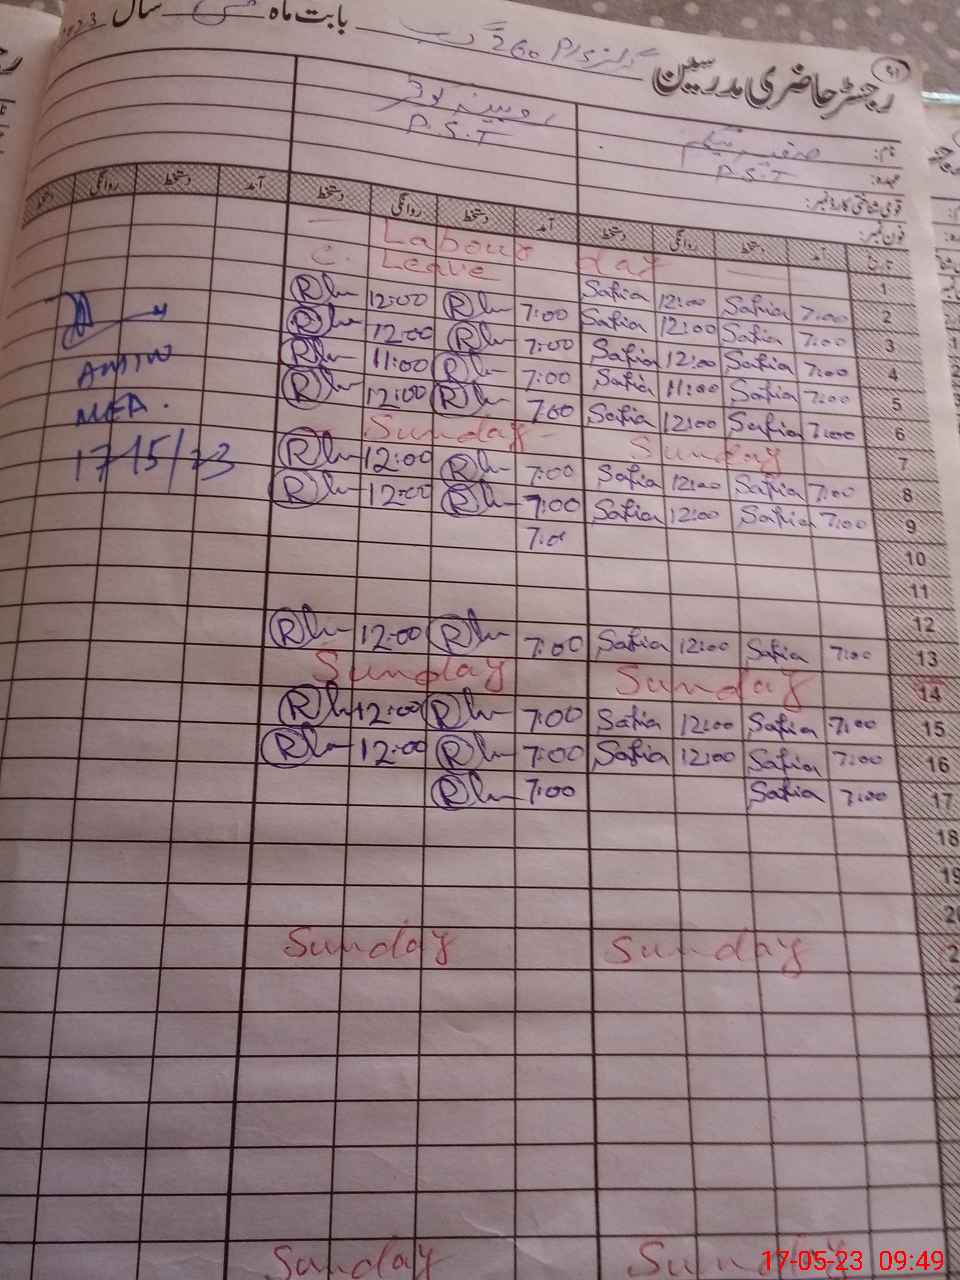 رجسٹر حاضری مدرسین گرلز P/S 260 گ ب بابت ماہ مئی سال 2023
نام: صفیہ بیگم
عہدہ: P.S.T P.S.T
قومی شناختی کارڈ نمبر:
فون نمبر:
تاریخ آمد دستخط روانگی دستخط آمد دستخط روانگی دستخط آمد دستخط روانگی دستخط
1 — Labour day —
2 7:00 Safia 12:00 Safia C. Leave
3 7:00 Safia 12:00 Safia 7:00 R 12:00 R
4 7:00 Safia 12:00 Safia 7:00 R 12:00 R
5 7:00 Safia 11:00 Safia 7:00 R 11:00 R
6 7:00 Safia 12:00 Safia 7:00 R 12:00 R
7 Sunday Sunday
8 7:00 Safia 12:00 Safia 7:00 R 12:00 R
9 7:00 Safia 12:00 Safia 7:00 R 12:00 R
10 7:0
11
12
13 7:00 Safia 12:00 Safia 7:00 R 12:00 R
14 Sunday Sunday
15 7:00 Safia 12:00 Safia 7:00 R 12:00 R
16 7:00 Safia 12:00 Safia 7:00 R 12:00 R
17 7:00 Safia 7:00 R
18
19
Sunday Sunday
Sunday Sunday
17/5/23
17-05-23 09:49